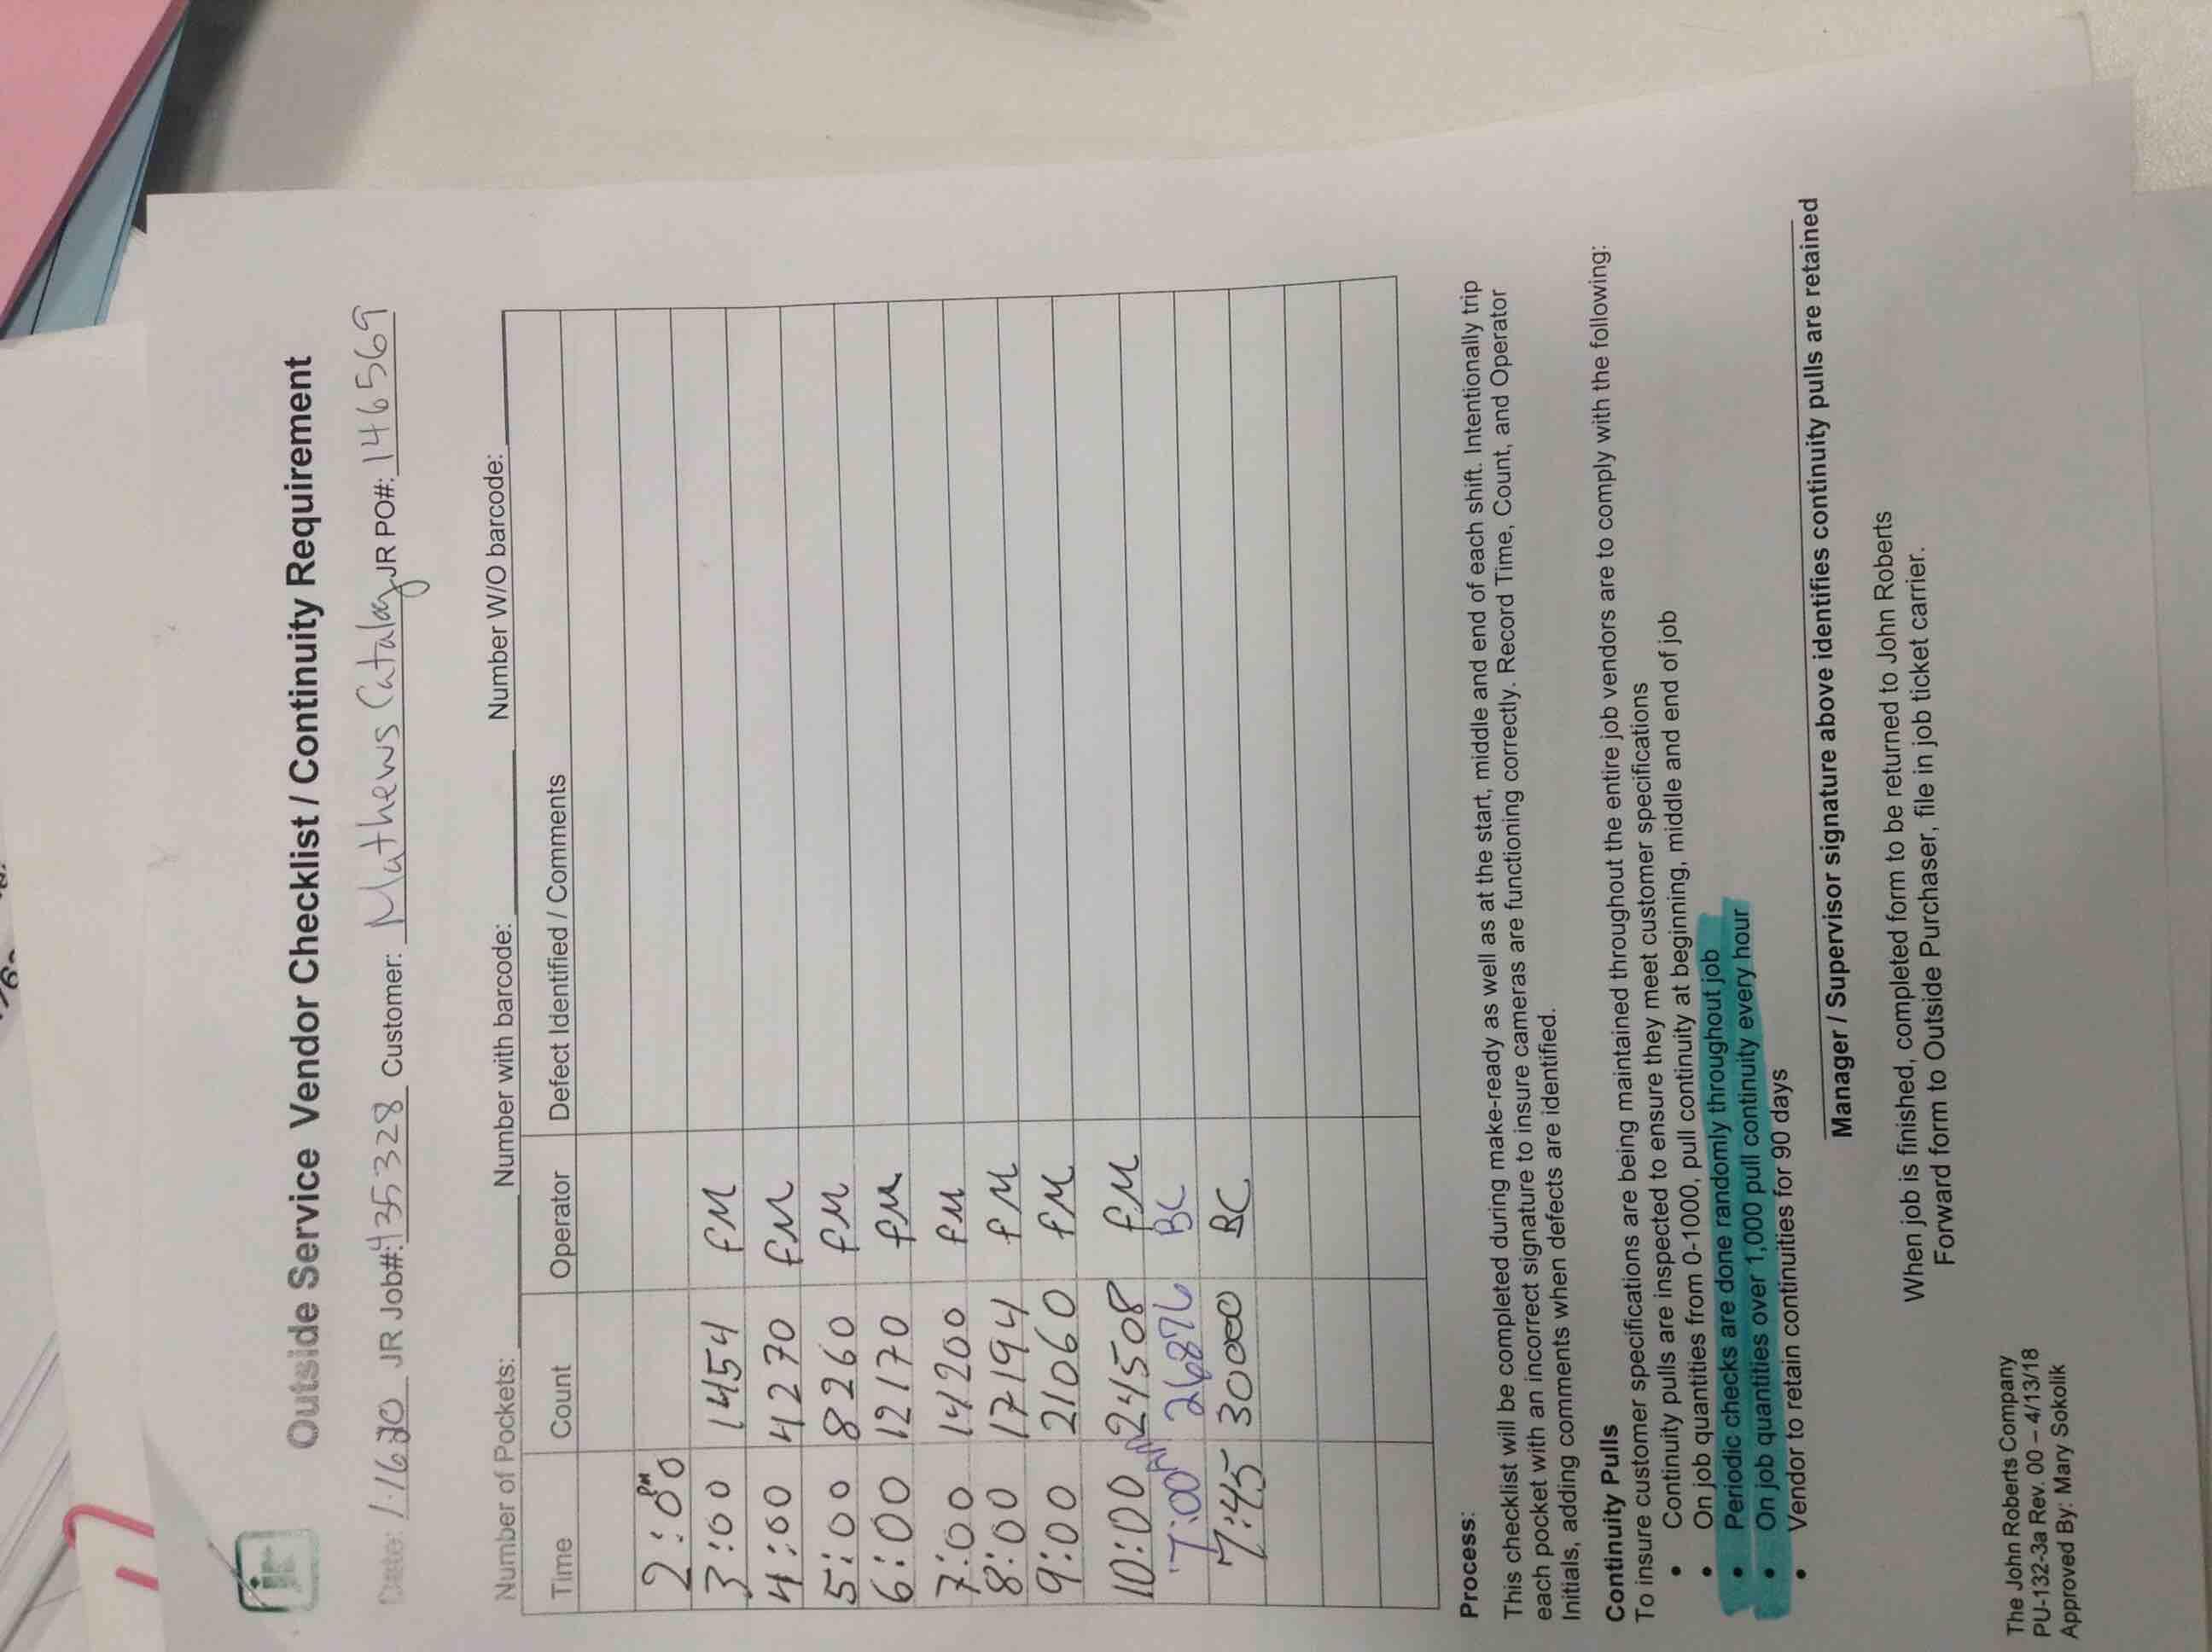 jr
Outside Service Vendor Checklist / Continuity Requirement
Date: JR Job#: 435328 Customer: Mathews Catalog JR PO#: 146569
Number of Pockets: Number with barcode: Number W/O barcode:
Time Count Operator Defect Identified / Comments
2:00 PM
3:00 1454 fM
4:00 4270 fM
5:00 8260 fM
6:00 12170 fM
7:00 14200 fM
8:00 17194 fM
9:00 21060 fM
10:00 24508 fM
7:00 AM 26876 BC
7:45 30000 BC
Process:
This checklist will be completed during make-ready as well as at the start, middle and end of each shift. Intentionally trip
each pocket with an incorrect signature to insure cameras are functioning correctly. Record Time, Count, and Operator
Initials, adding comments when defects are identified.
Continuity Pulls
To insure customer specifications are being maintained throughout the entire job vendors are to comply with the following:
• Continuity pulls are inspected to ensure they meet customer specifications
• On job quantities from 0-1000, pull continuity at beginning, middle and end of job
• Periodic checks are done randomly throughout job
• On job quantities over 1,000 pull continuity every hour
• Vendor to retain continuities for 90 days
Manager / Supervisor signature above identifies continuity pulls are retained
When job is finished, completed form to be returned to John Roberts
Forward form to Outside Purchaser, file in job ticket carrier.
The John Roberts Company
PU-132-3a Rev. 00 – 4/13/18
Approved By: Mary Sokolik